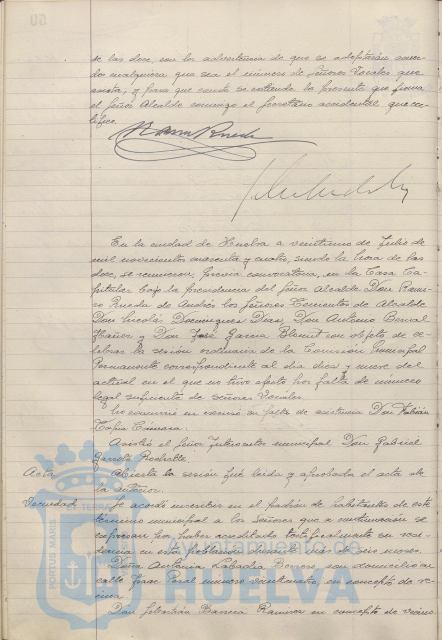 se las doce, con las advertencia de que se adoptarán acuer-
dos cualquiera que sea el número de Señores Vocales que
asista, y para que conste se extiende la presente que firma
el Señor Alcalde conmigo el Secretario accidental que cer-
tifico.
En la ciudad de Huelva a veintiuno de Julio de
mil novecientos cuarenta y cuatro, siendo la hora de las
doce, se reunieron, previa convocatoria, en la Casa Ca-
pitular bajo la presidencia del Señor Alcalde Don
Rueda de Andrés los Señores Tenientes de Alcalde
Don Nicolás Domínguez Días, Don Antonio Bernal
y Don José García con objeto de ce-
lebrar la sesión ordinaria de la Comisión Municipal
Permanente correspondiente al día diez y nueve del
actual en el que no tuvo efecto por falta de número
legal suficiente de Señores Vocales.
No concurrió en escusó su falta de asistencia Don Fabián
Tapia Cámara.
Asistió el Señor Interventor municipal Don Gabriel
Garrido
Acta. Abierta la sesión fué leída y aprobada el acta de
la anterior.
Vecindad. Se acordó inscribir en el padrón de habitantes de este
término municipal a los Señores que a continuación se
expresan por haber acreditado testificalmente su resi-
dencia en esta población durante más de seis meses.
Doña Antonia Labadía con domicilio en
calle Isaac Peral número veinticuatro, en concepto de ve-
cina.
Don Sebastián Ramírez en concepto de vecino
PORTUS MARIS
Ayuntamiento de
HUELVA